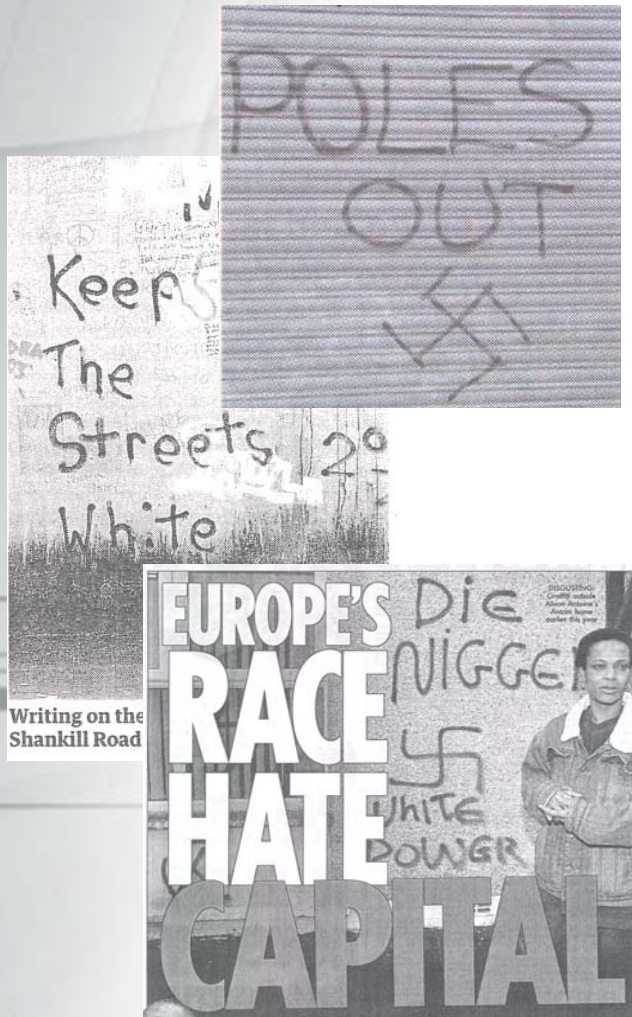 POLES
OUT
Keep
The
Streets
White
Writing on the
Shankill Road
EUROPE'S
RACE
HATE
CAPITAL
DIE
NIGGE
WHITE
POWER
DISGUSTING:
Graffiti outside
Alison Antoine's
Antrim home
earlier this year